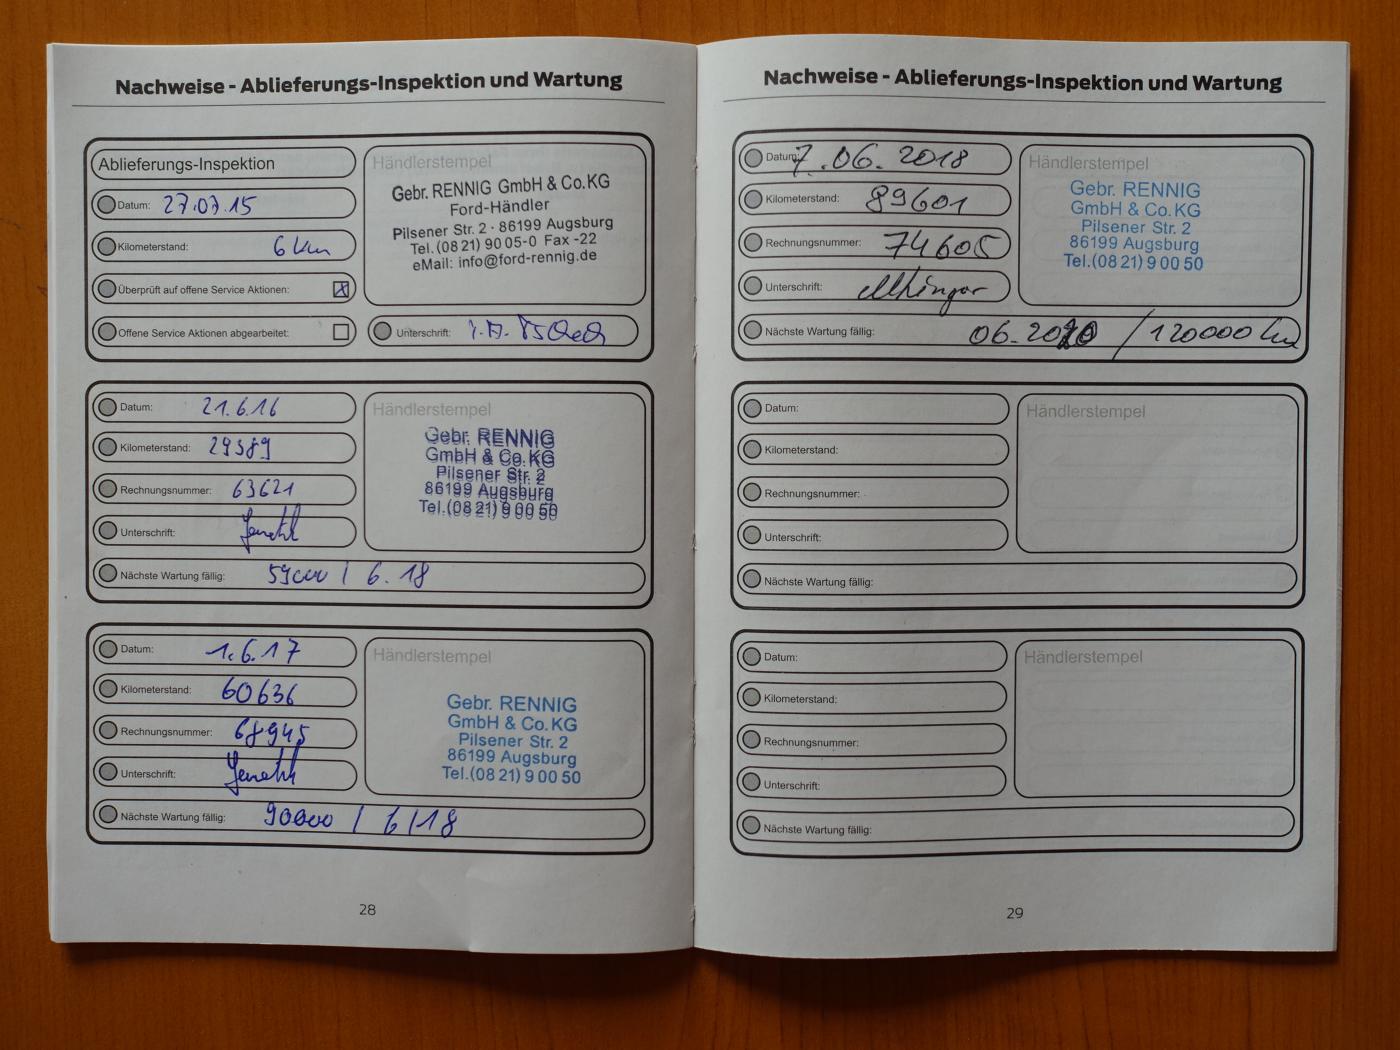 Nachweise - Ablieferungs-Inspektion und Wartung
Ablieferungs-Inspektion
Datum: 27.07.15
Kilometerstand: 6 km
Überprüft auf offene Service Aktionen: X
Offene Service Aktionen abgearbeitet:
Händlerstempel
Gebr. RENNIG GmbH & Co.KG
Ford-Händler
Pilsener Str. 2 · 86199 Augsburg
Tel.(08 21) 90 05-0 Fax -22
eMail: info@ford-rennig.de
Unterschrift:
Datum: 21.6.16
Kilometerstand: 29389
Rechnungsnummer: 63621
Unterschrift:
Händlerstempel
Gebr. RENNIG
GmbH & Co. KG
Pilsener Str. 2
86199 Augsburg
Tel.(08 21) 9 00 50
Nächste Wartung fällig: 59000 / 6.18
Datum: 1.6.17
Kilometerstand: 60636
Rechnungsnummer: 68945
Unterschrift:
Händlerstempel
Gebr. RENNIG
GmbH & Co. KG
Pilsener Str. 2
86199 Augsburg
Tel.(08 21) 9 00 50
Nächste Wartung fällig: 90000 / 6/18
28
Nachweise - Ablieferungs-Inspektion und Wartung
Datum: 7.06.2018
Kilometerstand: 89601
Rechnungsnummer: 74605
Unterschrift:
Händlerstempel
Gebr. RENNIG
GmbH & Co. KG
Pilsener Str. 2
86199 Augsburg
Tel.(08 21) 9 00 50
Nächste Wartung fällig: 06.2020 / 120000 km
Datum:
Kilometerstand:
Rechnungsnummer:
Unterschrift:
Händlerstempel
Nächste Wartung fällig:
Datum:
Kilometerstand:
Rechnungsnummer:
Unterschrift:
Händlerstempel
Nächste Wartung fällig:
29